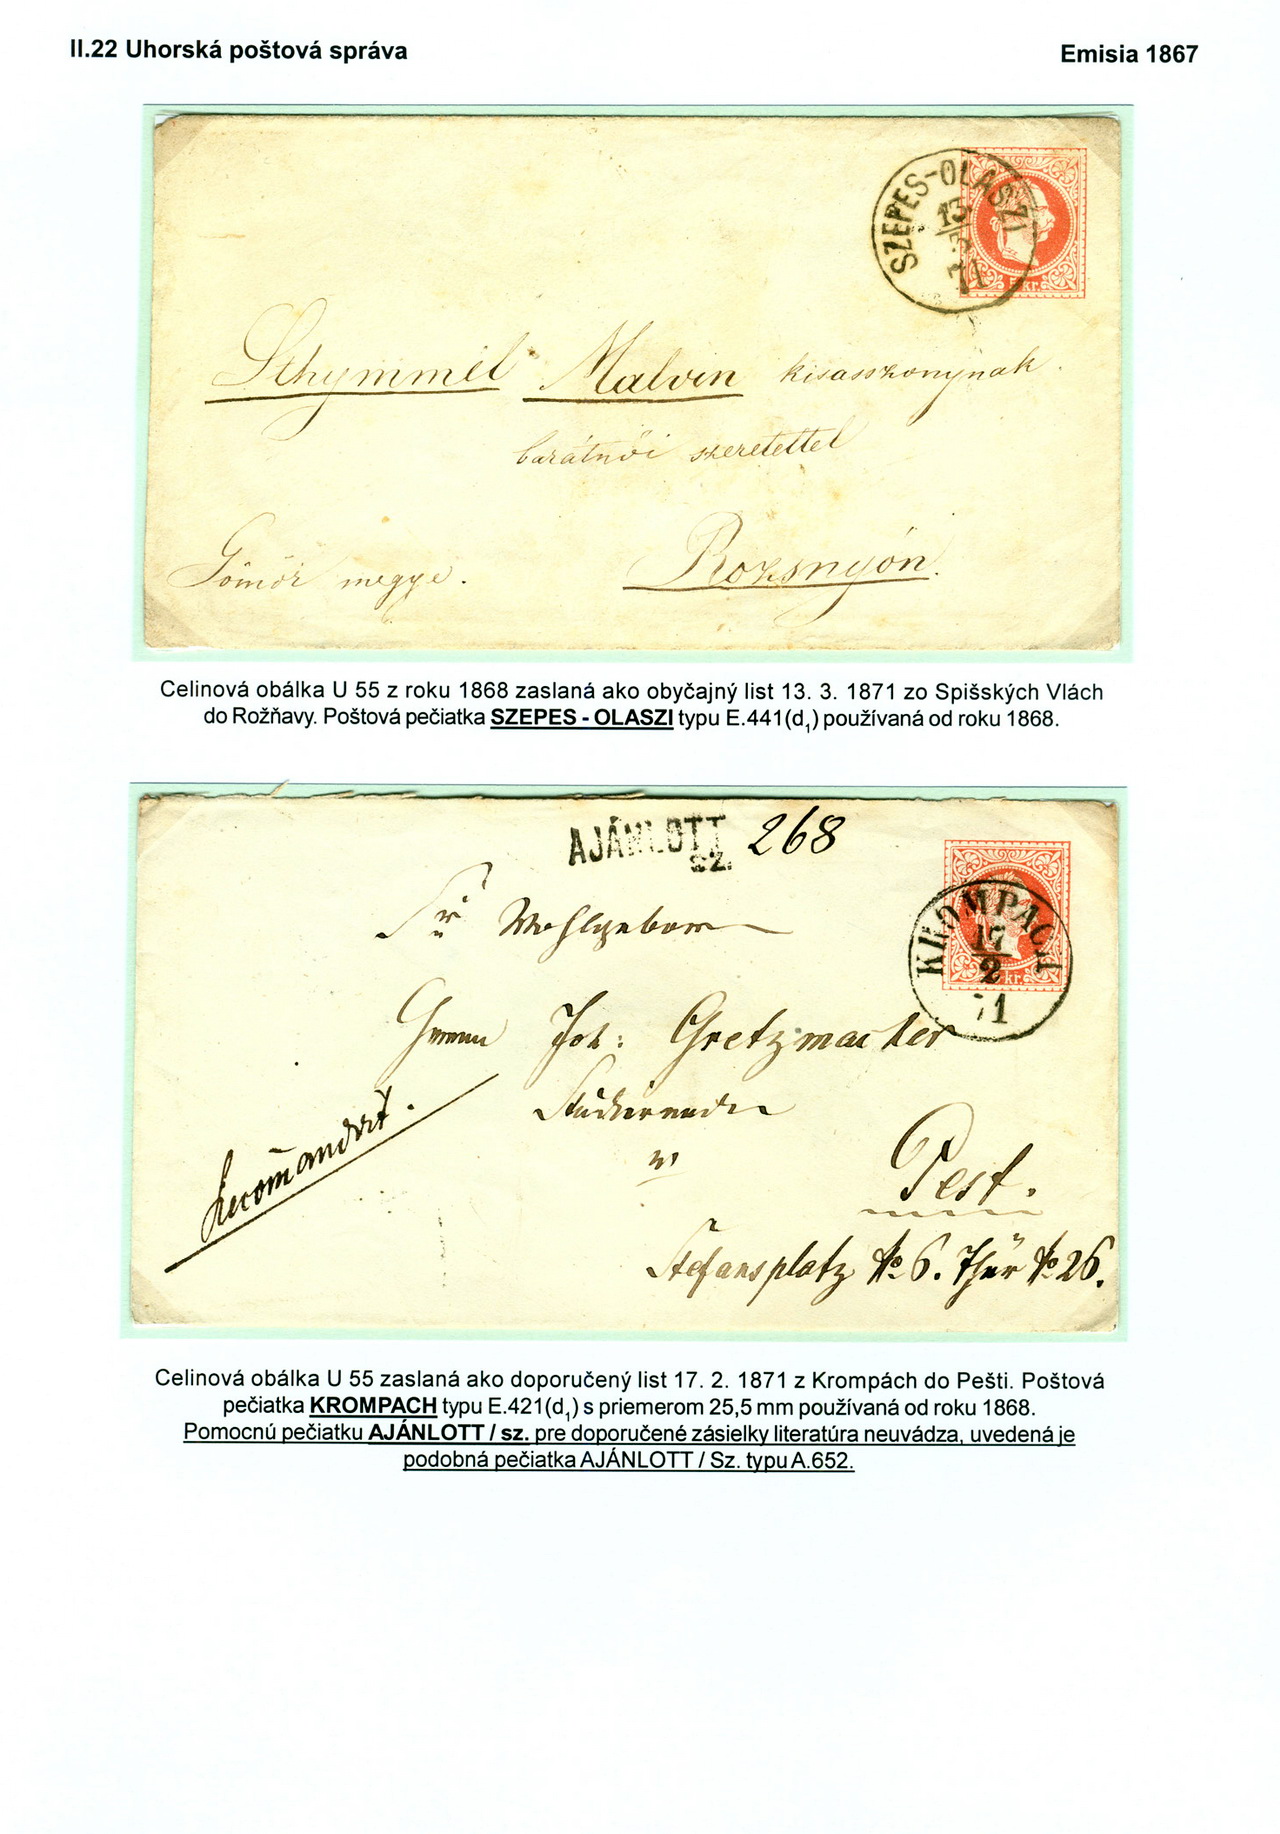 II.22 Uhorská poštová správa
Emisia 1867
SZEPES-OLASZI
13
3
71
5 kr.
Schymmel Malvin kisasszonynak.
barátnöi szeretettel
Gömör megye.
Rozsnyón.
Celinová obálka U 55 z roku 1868 zaslaná ako obyčajný list 13. 3. 1871 zo Spišských Vlách
do Rožňavy. Poštová pečiatka SZEPES - OLASZI typu E.441(d₁) používaná od roku 1868.
AJÁNLOTT 268
sz.
KROMPACH
17
2
71
kr.
Sr Wohlgeboren
Herrn Joh: Gretzmacher
Studierender
in
Pest.
Recomandirt.
Stefansplatz No 6. Thür No 26.
Celinová obálka U 55 zaslaná ako doporučený list 17. 2. 1871 z Krompách do Pešti. Poštová
pečiatka KROMPACH typu E.421(d₁) s priemerom 25,5 mm používaná od roku 1868.
Pomocnú pečiatku AJÁNLOTT / sz. pre doporučené zásielky literatúra neuvádza, uvedená je
podobná pečiatka AJÁNLOTT / Sz. typu A.652.